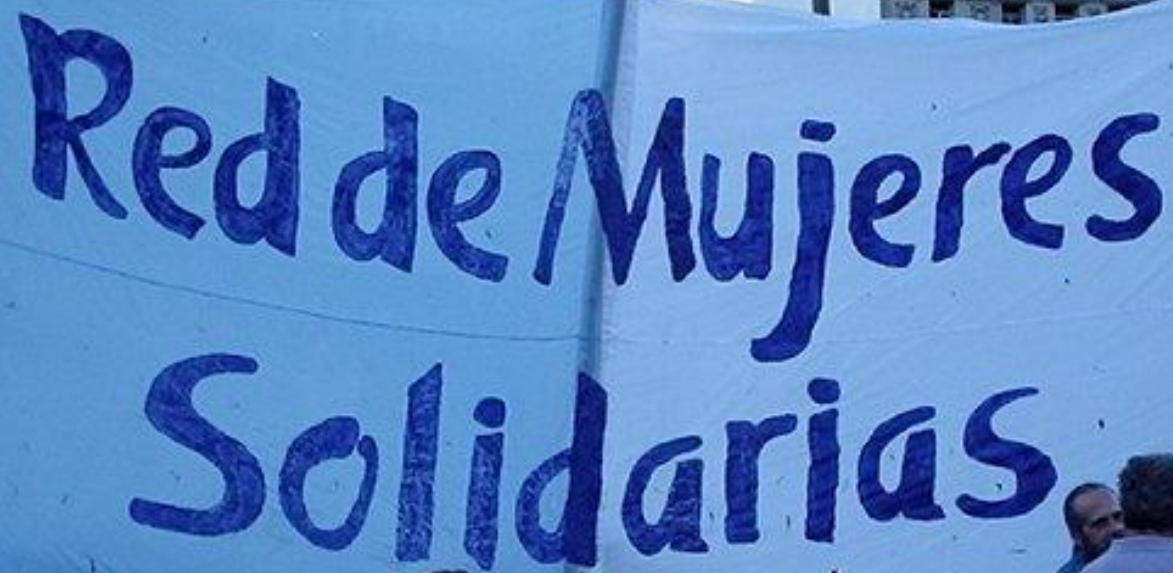 Red de Mujeres
Solidarias